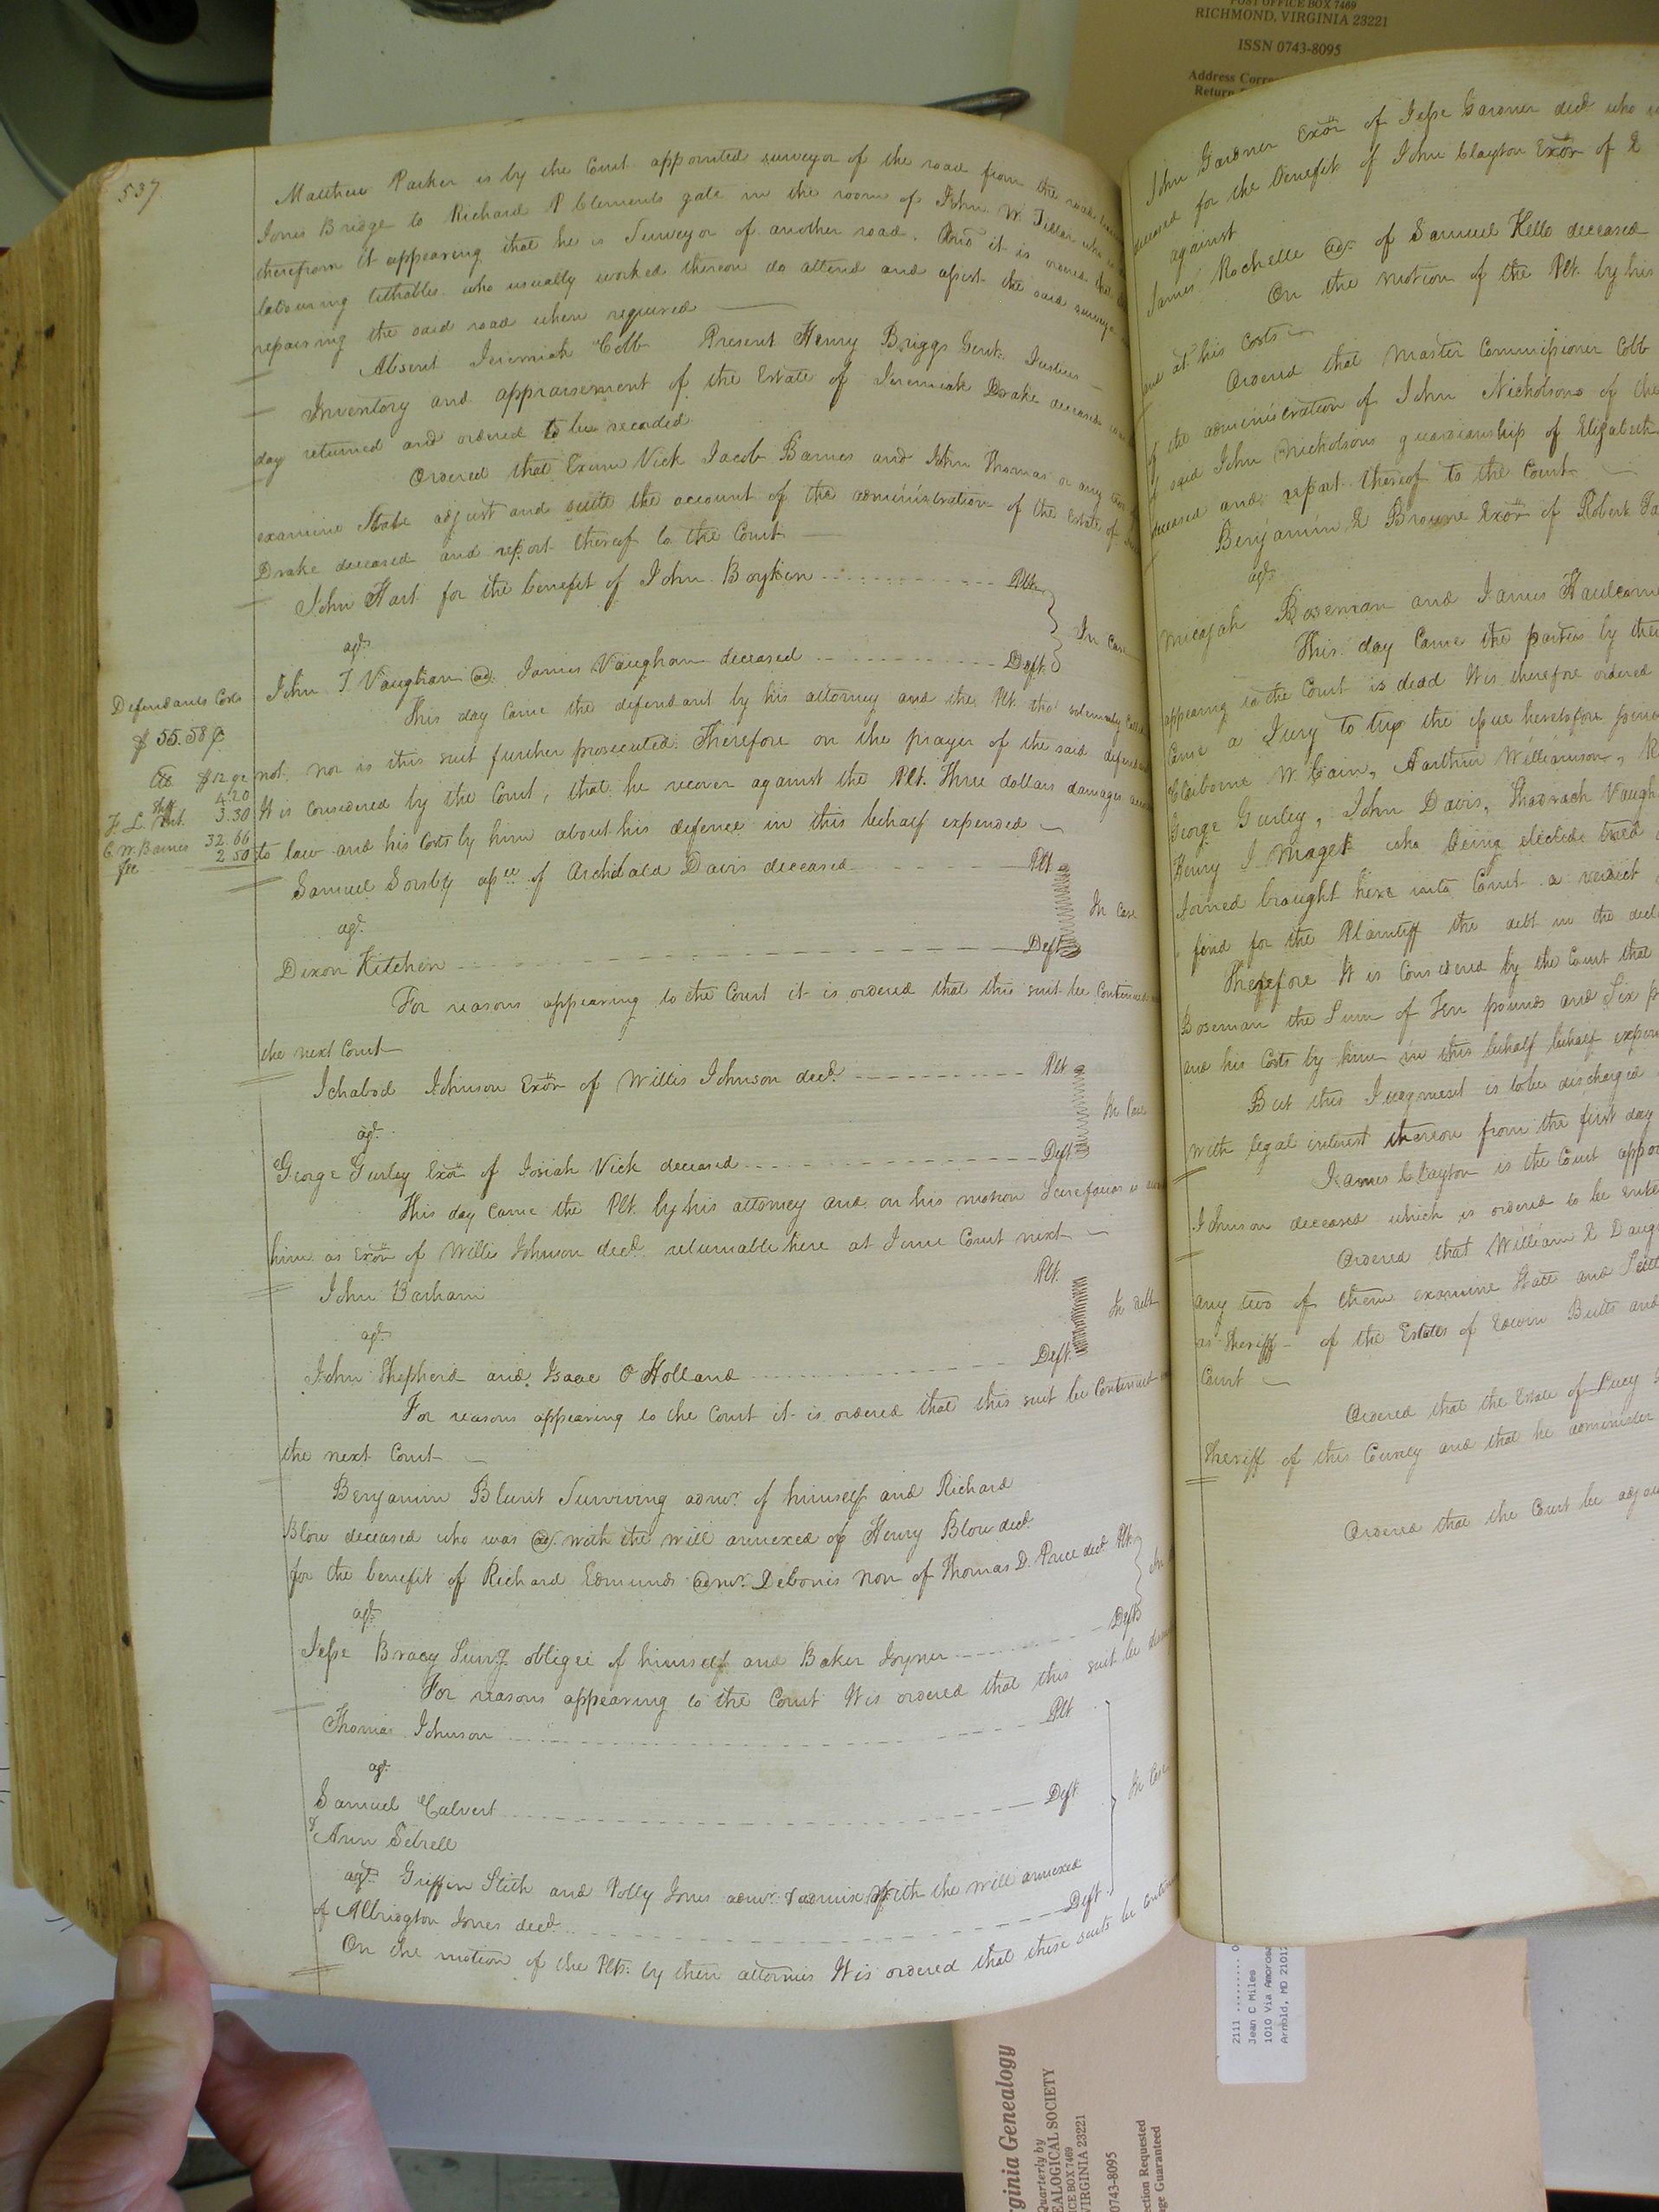 POST OFFICE BOX 7469
RICHMOND, VIRGINIA 23221
ISSN 0743-8095
Address
Return
537
Matthew Parker is by the Court appointed surveyor of the road from the road
Jones Bridge to Richard P Clements gate in the room of John W. Tillar who is
therefrom it appearing that he is Surveyor of another road. And it is ordered that the
labouring tithables who usually worked thereon do attend and assist the said surveyor
repairing the said road when required
Absent Jeremiah Cobb Present Henry Briggs Gent. Justices
Inventory and appraisement of the Estate of Jeremiah Drake deceased
day returned and ordered to be recorded
Ordered that Exum Vick Jacob Barnes and John Thomas or any
examine State adjust and settle the account of the administration of the Estate of
Drake deceased and report thereof to the Court
John Hart for the benefit of John Boykin Plt.
In Case
agt.
John T Vaughan ad. James Vaughan deceased Deft.
This day Came the defendant by his attorney and the Plt. tho' solemnly
not, nor is this suit further prosecuted. Therefore on the prayer of the said
It is considered by the Court, that he recover against the Plt. Three dollars damages
to law and his Costs by him about his defence in this behalf expended
Defendants Costs
$ 55.58
$12.92
Shff. 4.20
3.30
C. W. Barnes 32.66
2.50
Samuel Sorsby assee of Archibald Davis deceased Plt
In Case
agt.
Dixon Kitchen Deft
For reasons appearing to the Court it is ordered that this suit be Continued
the next Court
Ichabod Johnson Exor of Willis Johnson decd. Plt
In Case
agt.
George Gurley Exor of Josiah Vick deceased Deft
This day Came the Plt. by his attorney and on his motion Scire facias is
him as Exor of Willis Johnson decd. returnable here at June Court next
John Barham Plt.
In debt
agt.
John Shepherd and Isaac O Holland Deft
For reasons appearing to the Court it is ordered that this suit be Continued
the next Court
Benjamin Blunt Surviving admr. of himself and Richard
Blow deceased who was ad. with the will annexed of Henry Blow decd.
for the benefit of Richard Edmunds admr. Debonis non of Thomas D. Price decd. Plt.
agt.
Jesse Bracy Surg. obligei of himself and Baker Joyner Deft
For reasons appearing to the Court It is ordered that this suit be
Thomas Johnson Plt
agt.
Samuel Calvert Deft
In Case
& Ann Sebrell
agt. Griffin Stith and Polly Jones admr. & admix With the will annexed
of Albridgton Jones decd. Deft.
On the motion of the Plts. by their attornies It is ordered that these suits be
John Gardner Exor of Jesse Gardner decd. who
deceased for the benefit of John Clayton Exor of
against
James Rochelle ad. of Samuel Kello deceased
On the motion of the Plt. by his
and at his Costs
Ordered that Master Commissioner Cobb
of the administration of John Nicholsons of the
said John Nicholsons guardianship of Elizabeth
deceased and report thereof to the Court
Benjamin E Browne Exor of Robert
agt.
Micajah Boseman and James
This day Came the parties by their
appearing to the Court is dead It is therefore ordered
Came a Jury to try the issue heretofore joined
Claiborne W Cain, Aarthur Williamson,
George Gurley, John Davis, Shadrach
Henry J. Maget who being elected tried
Joined brought here into Court a verdict
find for the Plaintiff the debt in the
Therefore It is Considered by the Court that
Boseman the Sum of Ten pounds and Six
and his Costs by him in this behalf behalf
But this Judgment is to be discharged
with legal interest thereon from the first day
James Clayton is the Court
Johnson deceased which is ordered to be
Ordered that William E
any two of them examine State and
as Sheriff of the Estates of Edwin Butts and
Court
Ordered that the Estate of Lucy
Sheriff of this County and that he administer
Ordered that the Court be
2111
Jean C Miles
1010 Via Amorosa
Arnold, MD 21012
Genealogy
Quarterly by
SOCIETY
BOX 7469
VIRGINIA 23221
0743-8095
Requested
Guaranteed